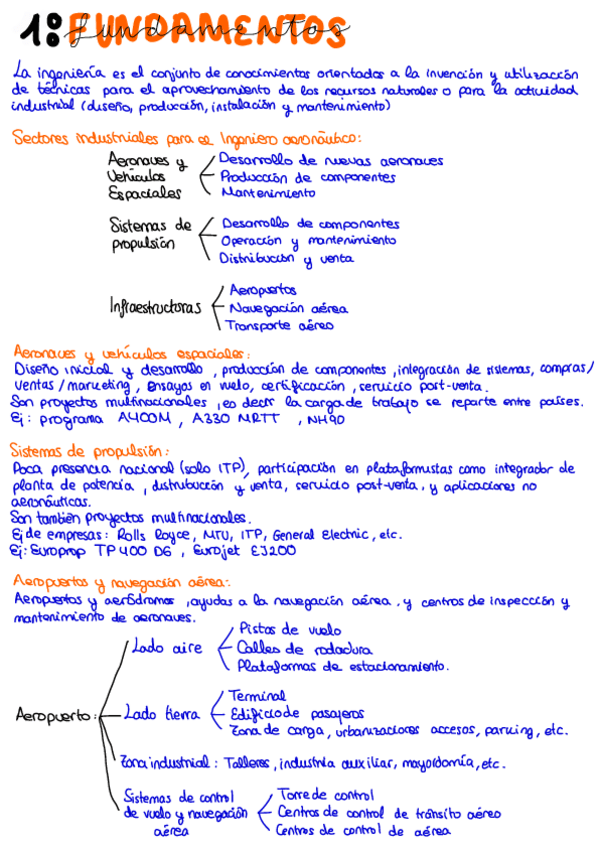 1: FUNDAMENTOS
fundamentos
La ingeniería es el conjunto de conocimientos orientados a la invención y utilización
de técnicas para el aprovechamiento de los recursos naturales o para la actividad
industrial (diseño, producción, instalación y mantenimiento)
Sectores industriales para el Ingeniero aeronáutico:
Aeronaves y Vehículos Espaciales
Desarrollo de nuevas aeronaves
Producción de componentes
Mantenimiento
Sistemas de propulsión
Desarrollo de componentes
Operación y mantenimiento
Distribución y venta
Infraestructuras
Aeropuertos
Navegación aérea
Transporte aéreo
Aeronaves y vehículos espaciales:
Diseño inicial y desarrollo, producción de componentes, integración de sistemas, compras/
ventas/marketing, ensayos en vuelo, certificación, servicio post-venta.
Son proyectos multinacionales, es decir la carga de trabajo se reparte entre países.
Ej: programa A400M, A330 MRTT, NH90
Sistemas de propulsión:
Poca presencia nacional (solo ITP), participación en plataformistas como integrador de
planta de potencia, distribución y venta, servicio post-venta, y aplicaciones no
aeronáuticas.
Son también proyectos multinacionales.
Ej de empresas: Rolls Royce, MTU, ITP, General Electric, etc.
Ej: Europrop TP400 D6, Eurojet EJ200
Aeropuertos y navegación aérea:
Aeropuertos y aeródromos, ayudas a la navegación aérea, y centros de inspección y
mantenimiento de aeronaves.
Aeropuerto:
Lado aire
Pistas de vuelo
Calles de rodadura
Plataformas de estacionamiento.
Lado tierra
Terminal
Edificio de pasajeros
Zona de carga, urbanizaciones accesos, parking, etc.
Zona industrial: Talleres, industria auxiliar, mayordomía, etc.
Sistemas de control
de vuelo y navegación
aérea
Torre de control
Centros de control de tránsito aéreo
Centros de control de aérea